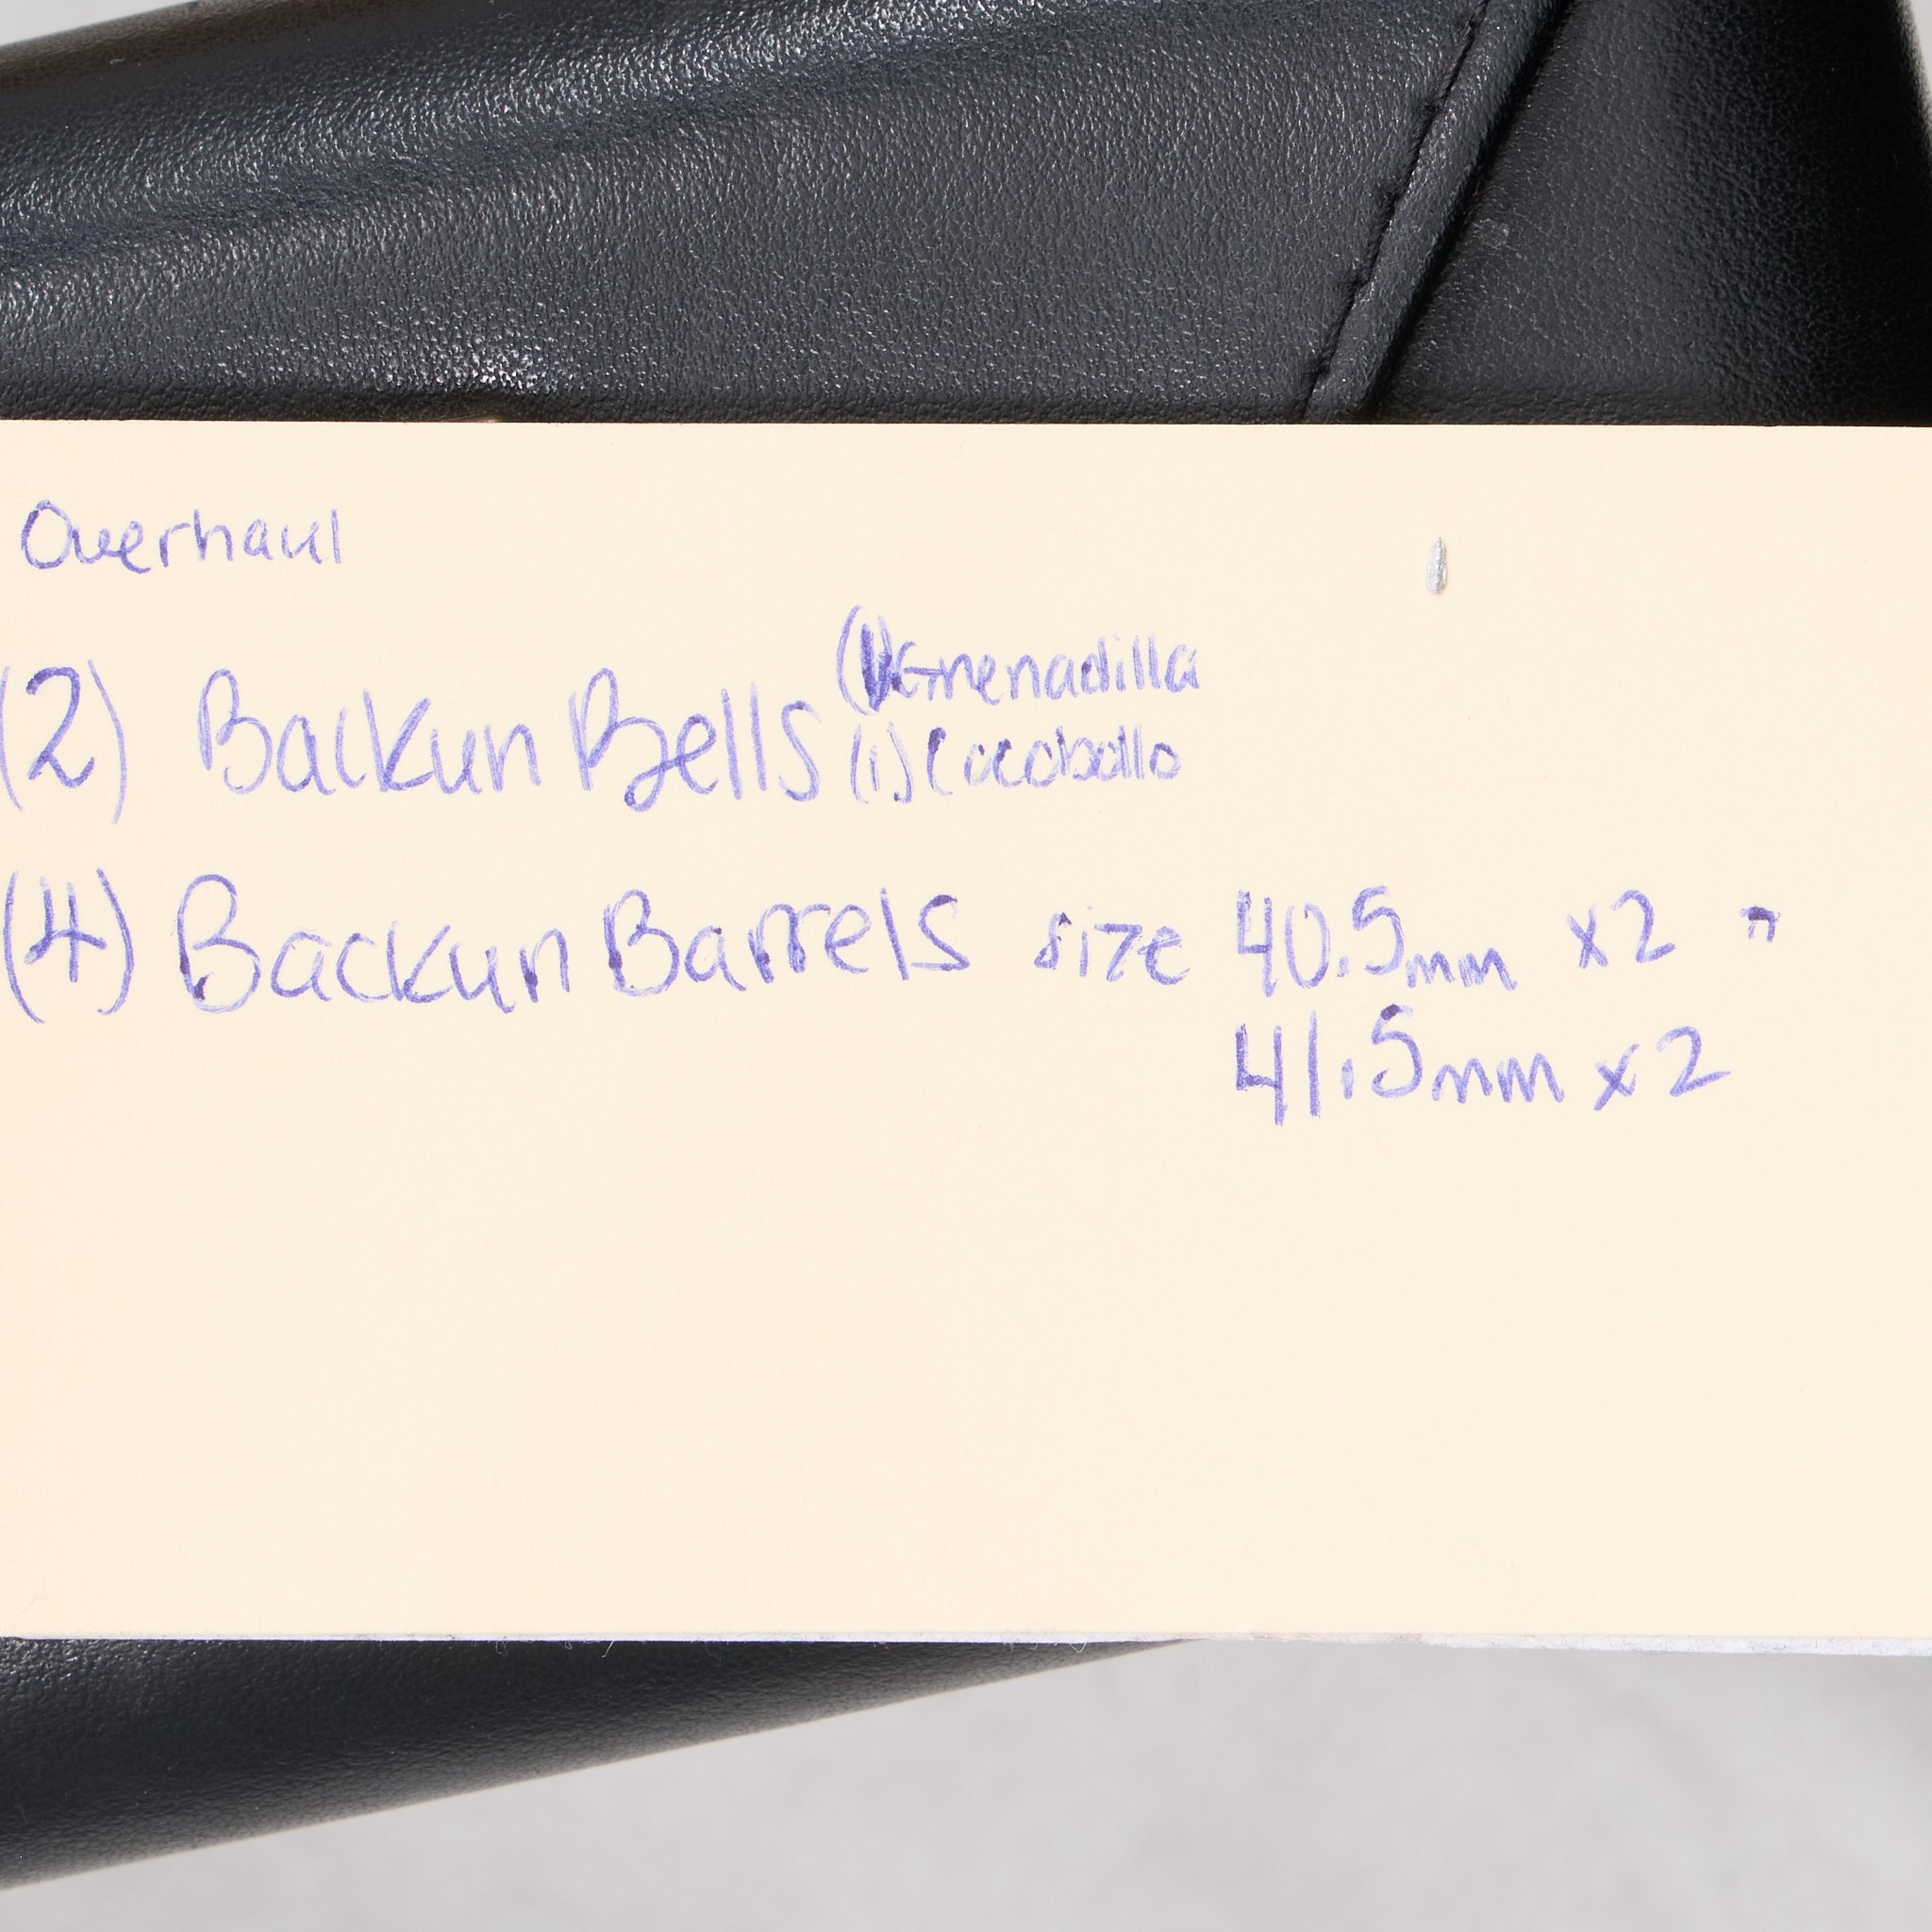 Overhaul
(1) Grenadilla
(2) Backun Bells (1) Cocobollo
(4) Backun Barrels size 40.5mm x2 "
41.5mm x2